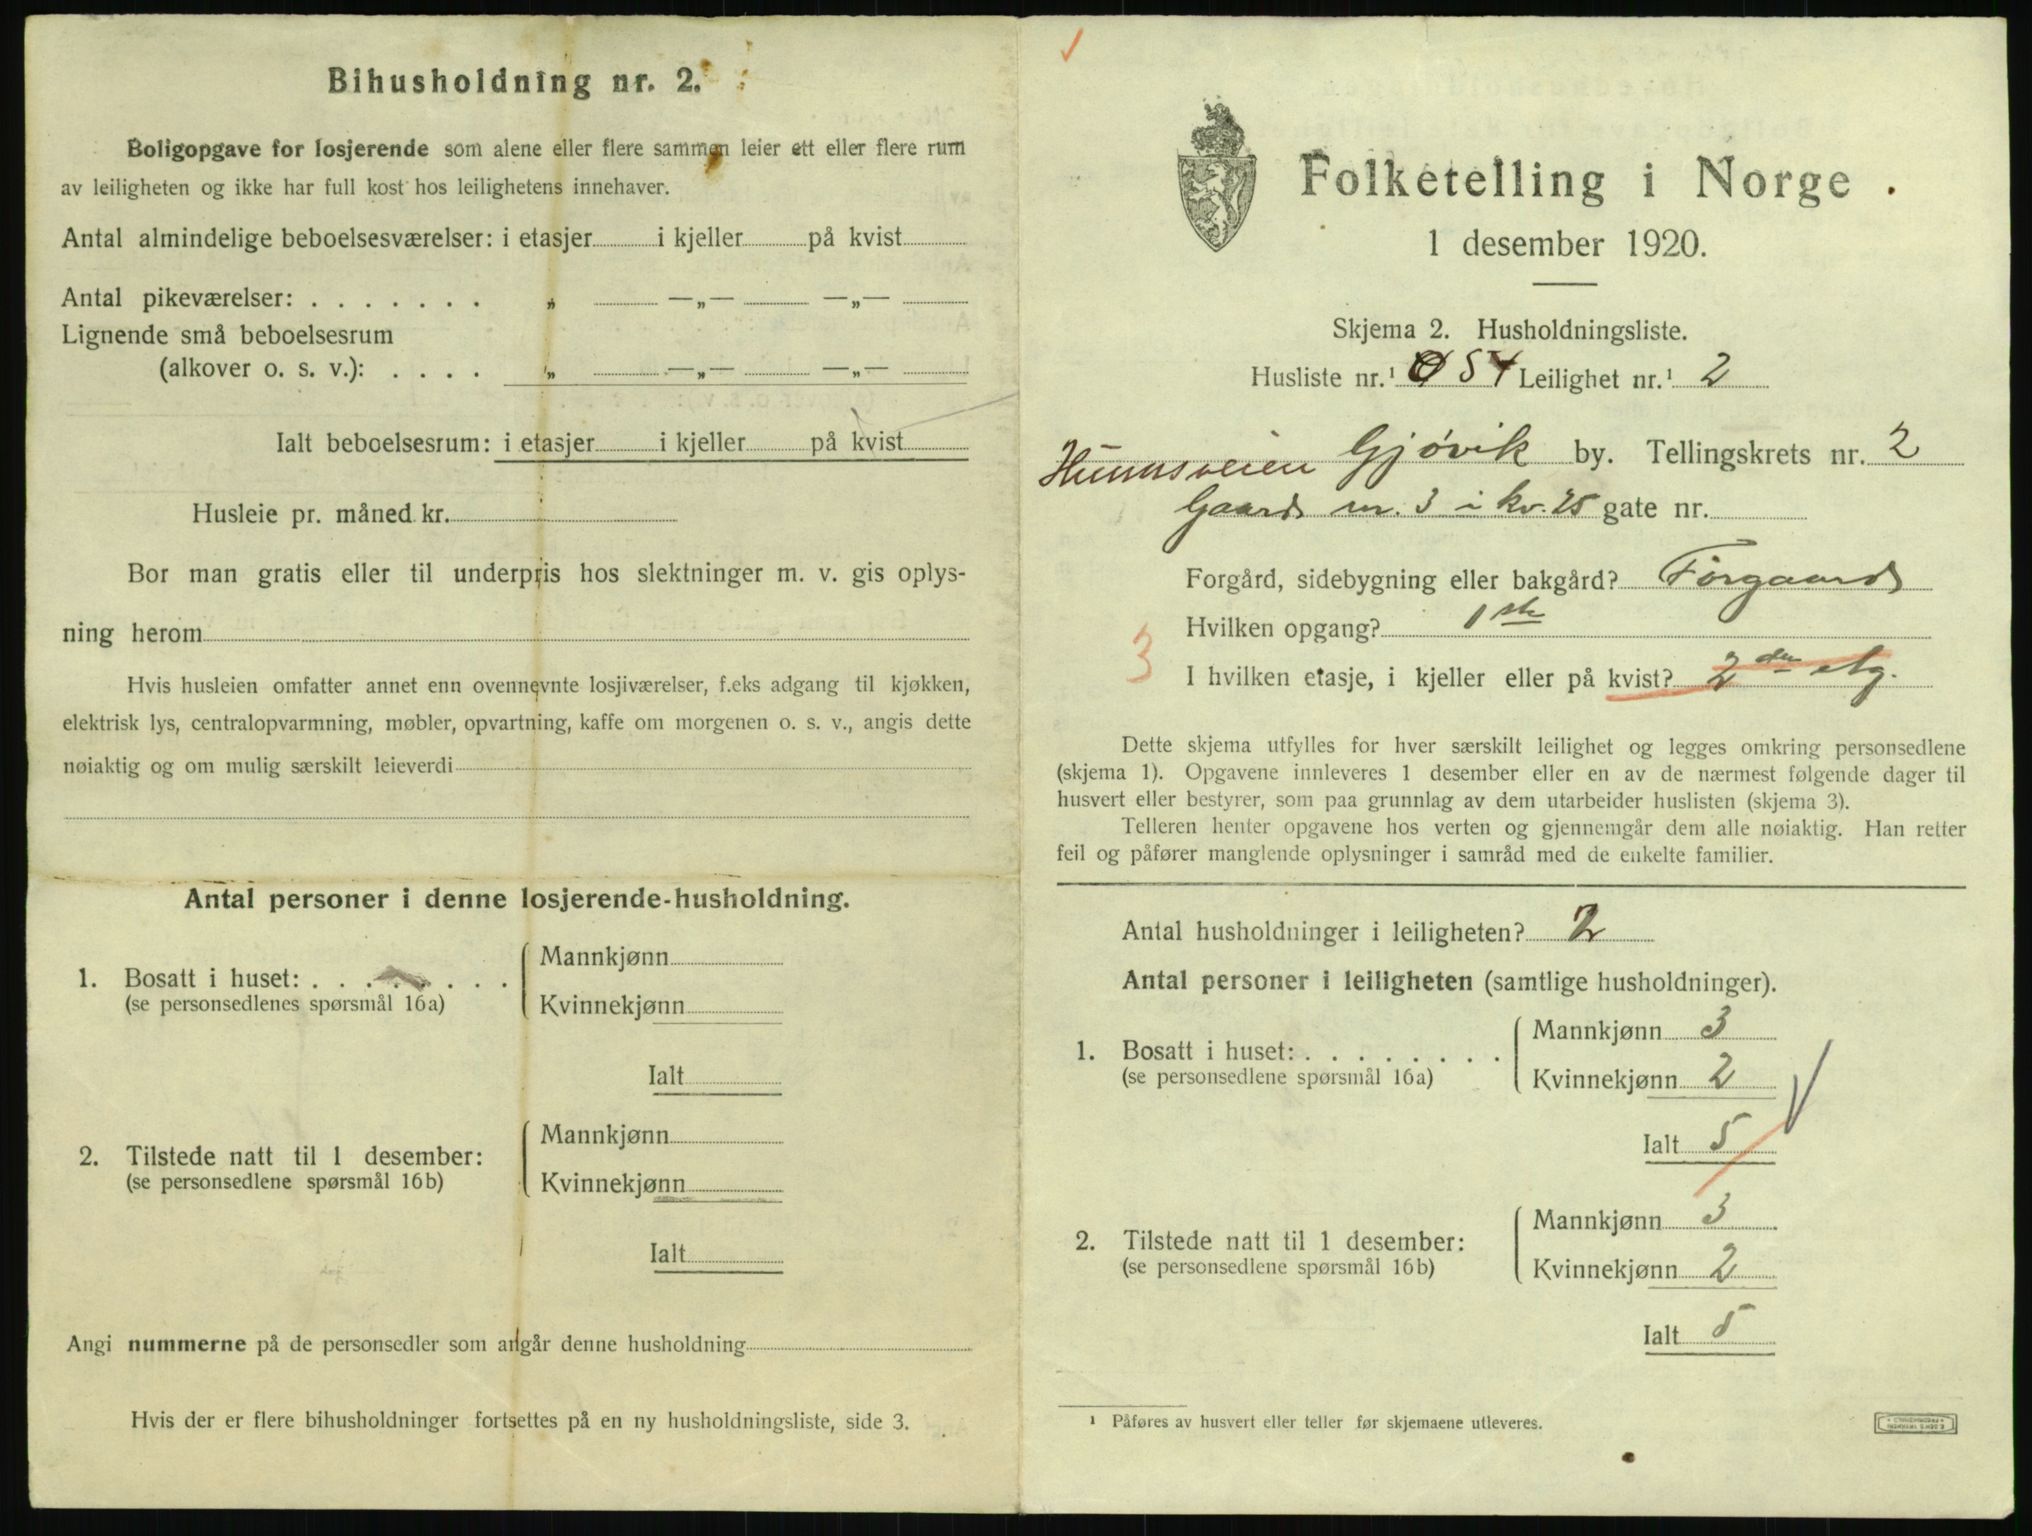 Bihusholdning nr. 2.
Boligopgave for losjerende som alene eller flere sammen leier ett eller flere rum
av leiligheten og ikke har full kost hos leilighetens innehaver.
Antal almindelige beboelsesværelser: i etasjer i kjeller på kvist
Antal pikeværelser: . . . . . . . „ —„— —„—
Lignende små beboelsesrum
(alkover o. s. v.): . . . . „ —„— —„—
Ialt beboelsesrum: i etasjer i kjeller på kvist
Husleie pr. måned kr.
Bor man gratis eller til underpris hos slektninger m. v. gis oplys-
ning herom
Hvis husleien omfatter annet enn ovennevnte losjiværelser, f.eks adgang til kjøkken,
elektrisk lys, centralopvarmning, møbler, opvartning, kaffe om morgenen o. s. v., angis dette
nøiaktig og om mulig særskilt leieverdi
Antal personer i denne losjerende-husholdning.
1. Bosatt i huset: . . . . . . . .
(se personsedlenes spørsmål 16a)
Mannkjønn
Kvinnekjønn
Ialt
2. Tilstede natt til 1 desember:
(se personsedlene spørsmål 16b)
Mannkjønn
Kvinnekjønn
Ialt
Angi nummerne på de personsedler som angår denne husholdning
Hvis der er flere bihusholdninger fortsettes på en ny husholdningsliste, side 3.
Folketelling i Norge
1 desember 1920.
Skjema 2. Husholdningsliste.
Husliste nr.¹ 54 Leilighet nr.¹ 2
Hunnsveien Gjøvik by. Tellingskrets nr. 2
Gaard nr. 3 i kv. 25 gate nr.
Forgård, sidebygning eller bakgård? Forgaard
Hvilken opgang? 1ste
3
I hvilken etasje, i kjeller eller på kvist? 2den etg.
Dette skjema utfylles for hver særskilt leilighet og legges omkring personsedlene
(skjema 1). Opgavene innleveres 1 desember eller en av de nærmest følgende dager til
husvert eller bestyrer, som paa grunnlag av dem utarbeider huslisten (skjema 3).
Telleren henter opgavene hos verten og gjennemgår dem alle nøiaktig. Han retter
feil og påfører manglende oplysninger i samråd med de enkelte familier.
Antal husholdninger i leiligheten? 2
Antal personer i leiligheten (samtlige husholdninger).
1. Bosatt i huset: . . . . . . . .
(se personsedlene spørsmål 16a)
Mannkjønn 3
Kvinnekjønn 2
Ialt 5
2. Tilstede natt til 1 desember:
(se personsedlene spørsmål 16b)
Mannkjønn 3
Kvinnekjønn 2
Ialt 5
¹ Påføres av husvert eller teller før skjemaene utleveres.